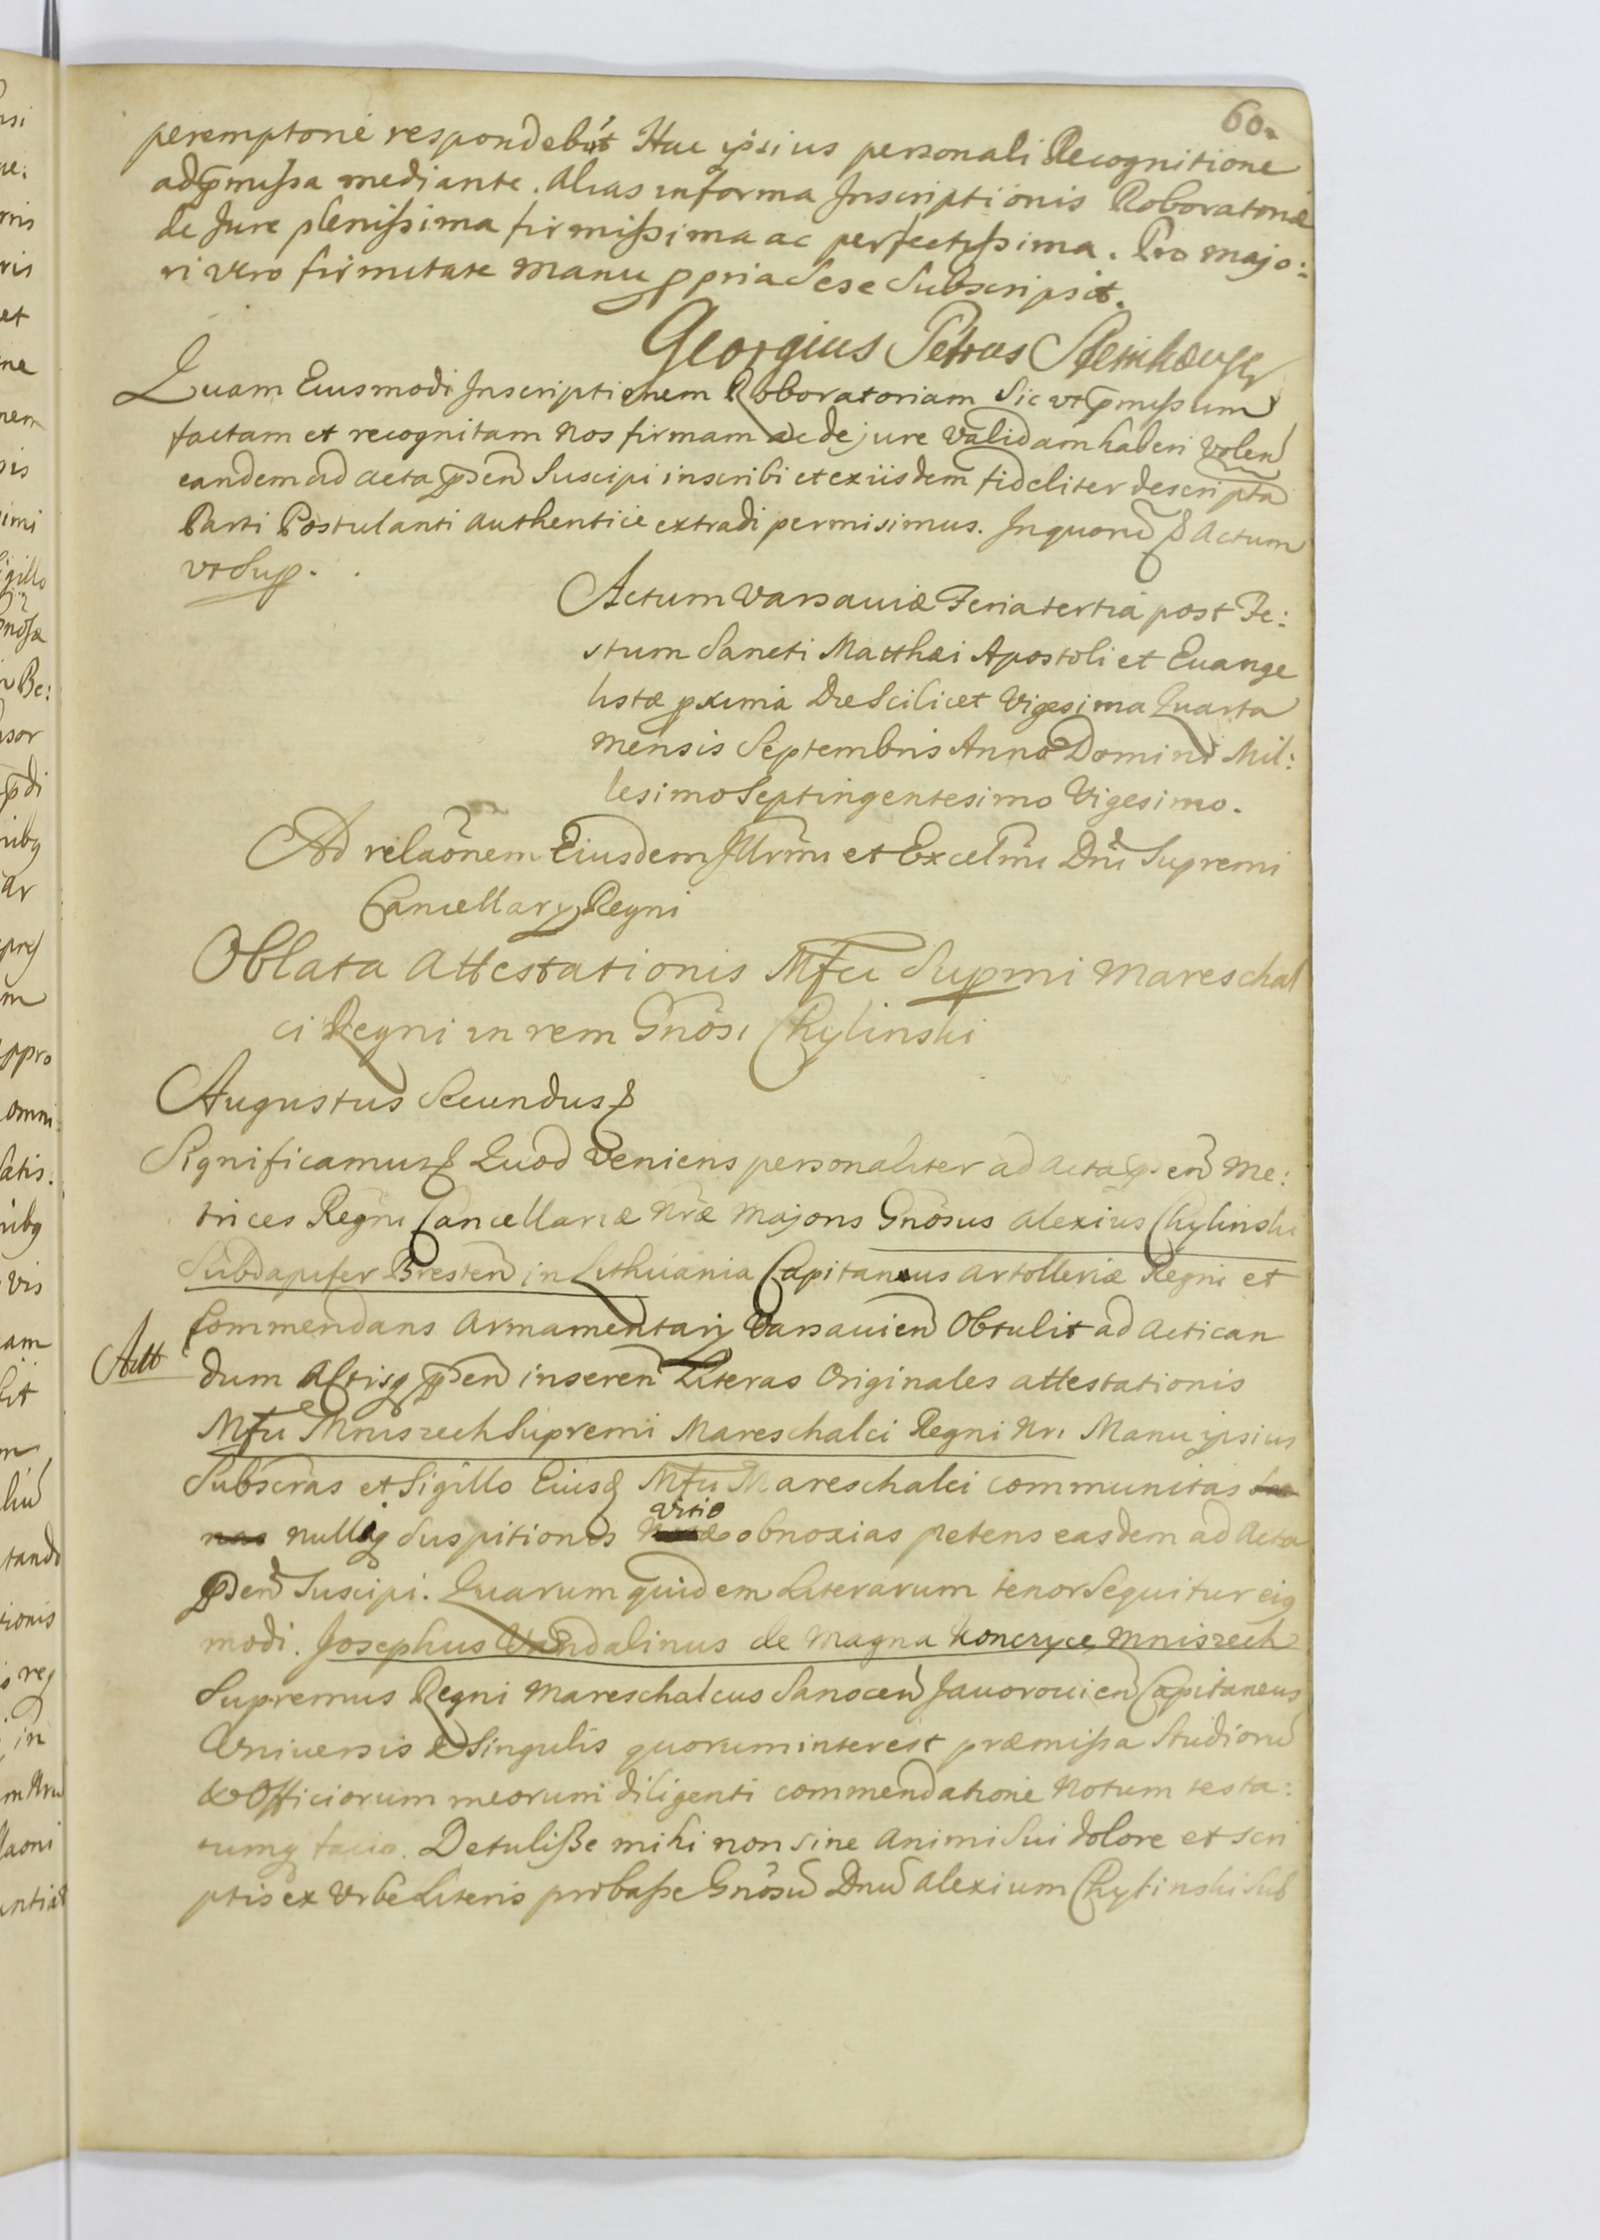 60.
peremptorie respondebit Hac ipsius personali Recognitione
ad p̄missa mediante. Alias in forma Inscriptionis Roboratoriæ
de Jure plenissima firmissima ac perfectissima. Pro majo:
ri vero firmitate manu ppria Sese Subscripsit.
Georgius Petrus Steinhæuser
Quam Eiusmodi Inscriptionem Roboratoriam Sic vt p̄missum
factam et recognitam Nos firmam ac de jure validam haberi volen̄
eandem ad acta p̄den̄ Suscipi inscribi et ex iisdem fideliter descripta
Parti Postulanti authentice extradi permisimus. In quorū & Actum
vt Sup.
Actum Varsaviæ Feria tertia post Fe:
stum Sancti Matthæi Apostoli et Euange
listæ pxima Die Scilicet Vigesima Quarta
Mensis Septembris Anno Domini Mil:
lesimo Septingentesimo Vigesimo.
Ad relaōnem Eiusdem Illrmi et Excelmi Dn̄i Supremi
Cancellary Regni
Oblata Attestationis Mfci Supmi Mareschal
ci Regni in rem Gnōsi Chylinski
Augustus Secundus &
Significamus & Quod Veniens personaliter ad acta p̄sen̄ Me:
trices Regni Cancellariæ Nr̄æ Majoris Gnōsus Alexius Chylinski
Subdapifer Bresten̄ in Lithuania Capitaneus Artolleriæ Regni et
Commendans Armamentarij Varsavien̄ Obtulit ad actican
Att
dum Actisq p̄den̄ inseren̄ Literas Originales attestationis
Mfci Mniszech Supremi Mareschalci Regni Nri Manu ipsius
Subscr̄as et Sigillo Eiusd Mfci Mareschalci communitas
vitio
nullisq Suspitionis obnoxias petens easdem ad Acta
p̄den̄ Suscipi. Quarum quidem Literarum tenor Sequitur eiq
modi. Josephus Vandalinus de Magna Konczyce Mniszech
Supremus Regni Mareschalcus Sanocen̄ Javorovien̄ Capitaneus
Vniversis & Singulis quorum interest præmissa Studiorū
& Officiorum meorum diligenti commendatione Notum testa:
tumq facio. Detulisse mihi non sine Animi Sui dolore et scri
ptis ex Vrbe Literis probasse Gnōsū Dnū Alexium Chylinski Sub